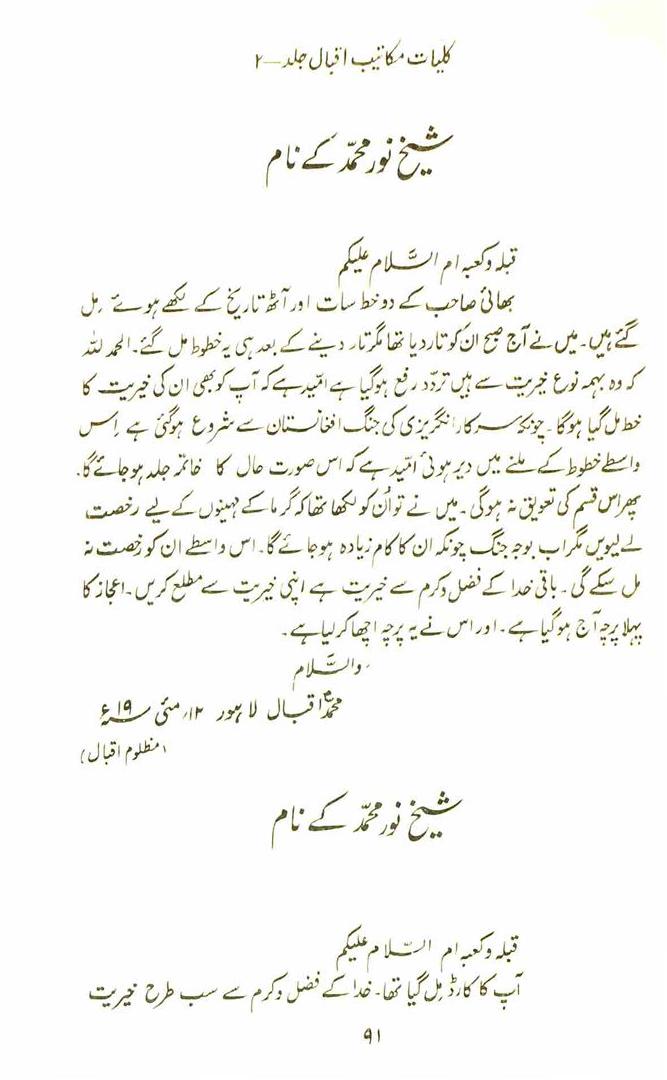 کلیات مکاتیب اقبال جلد ـ ۲
شیخ نور محمدؐ کے نام
قبلہ و کعبہ ام السَّلام علیکم
بھائی صاحب کے دو خط سات اور آٹھ تاریخ کے لکھے ہوئے مِل
گئے ہیں۔ میں نے آج صبح ان کو تار دیا تھا مگر تار دینے کے بعد ہی یہ خطوط مل گئے۔ الحمد للہ
کہ وہ بہمہ نوع خیریت سے ہیں تردّد رفع ہوگیا ہے امّید ہے کہ آپ کو بھی ان کی خیریت کا
خط مل گیا ہوگا۔ چونکہ سرکار انگریزی کی جنگ افغانستان سے شروع ہوگئی ہے اِس
واسطے خطوط کے ملنے میں دیر ہوئی امّید ہے کہ اس صورت حال کا خاتمہ جلد ہو جائے گا۔
پھر اس قسم کی تعویق نہ ہوگی۔ میں نے تو اُن کو لکھا تھا کہ گرما کے مہینوں کے لیے رخصت
لے لیویں مگر اب بوجہ جنگ چونکہ ان کا کام زیادہ ہو جائے گا۔ اس واسطے ان کو رخصت نہ
مل سکے گی۔ باقی خدا کے فضل و کرم سے خیریت ہے اپنی خیریت سے مطلع کریں۔ اعجاز کا
پہلا پرچہ آج ہوگیا ہے۔ اور اس نے یہ پرچہ اچھا کرلیا ہے۔
والسَّلام
محمدؐ اقبال لاہور ۱۲؍ مئی ۱۹ء
(مظلوم اقبال)
شیخ نور محمدؐ کے نام
قبلہ و کعبہ ام السّلام علیکم
آپ کا کارڈ مِل گیا تھا۔ خدا کے فضل و کرم سے سب طرح خیریت
۹۱